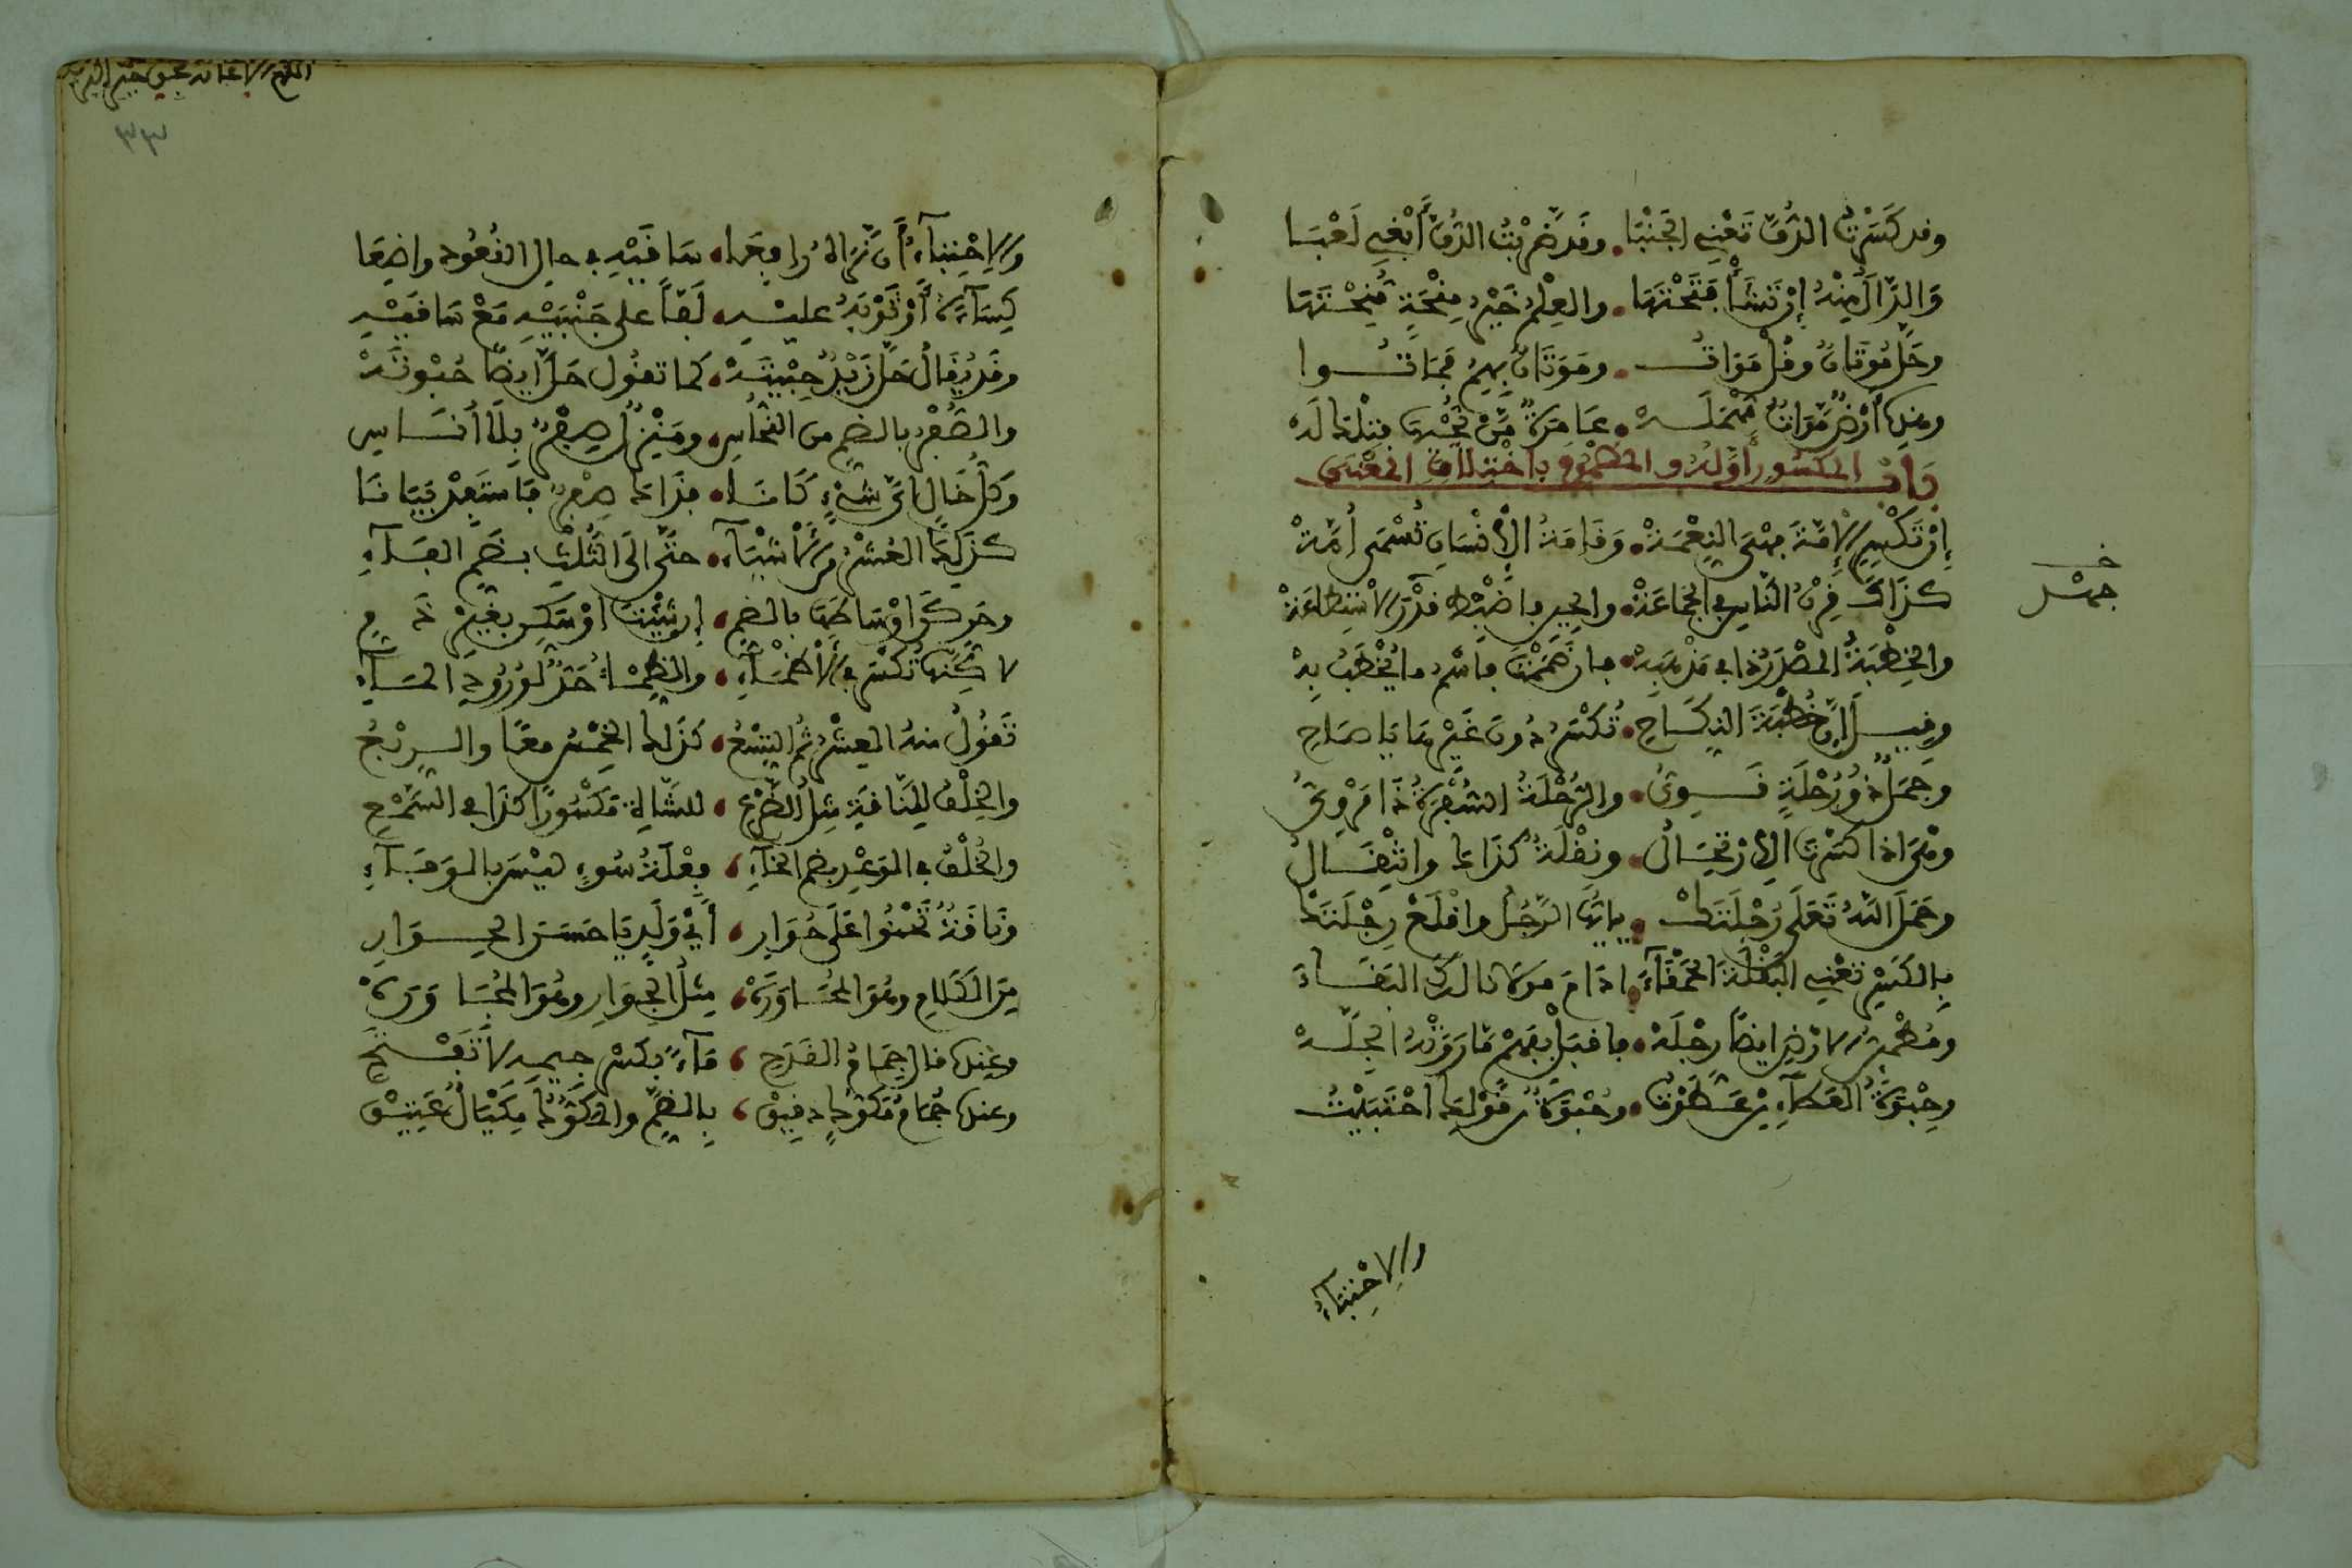 وقد كَسَرْتُ الدَّفَّ تَعْنِي الجَنْبَا وقَد ضَرَبْتُ الدُّفَّ أَبْغِي لَعْبَا
وَالدَّالُ مِنْهُ إِن تَشَأْ فَتَحْتَهَا والعِلْمُ خَيْرُ مِنْحَةٍ مُنِحْتَهَا
وحَلَّ مُوتَانٌ وقُلْ مَوَاتُ ومَوَتَانٌ بِهِمُ فَمَاتُوا
وهذه أَرْضٌ مَوَاتٌ مُهْمَلَهْ عَامِرَةٌ مَنْ يُحْيِهَا فتلكَ لَهْ
بَابُ المكسُورِ أَوَّلُهُ والمضْمُومِ باخْتِلَافِ المعْنَى
إِن تَكْسِرِ الإِمَّةَ فهْيَ النِّعْمَهْ وَقَامَةُ الإِنْسَانِ تُسْمَى أُمَّهْ
كذَاكَ قَرْنُ النَّاسِ والجَمَاعَهْ والحِينِ فاضْبِطْ قَدْرَ الاسْتِطَاعَهْ
والخِطْبَةُ المصْدَرُ ذا في مَذْهَبِهْ فإن ضَمَمْتَ فَاسْمُ ما يُخْطَبُ بِهْ
وقِيلَ إِنَّ خِطْبَةَ النِّكَاحِ تُكْسَرُ دُونَ غَيْرِهَا يَا صَاحِ
وجَمَلٌ ذُو رُحْلَةٍ قَوِيُّ والرِّحْلَةُ السَّفْرَةُ ذَا مَرْوِيُّ
وهْيَ اذا كسَرْتَ الارْتِحَالُ ونِقْلَةٌ كذَاكَ وانْتِقَالُ
وحَمَلَ اللهُ تَعَلَى رُجْلَتَكْ يأيها الرَّجُلُ واقْلَعْ رِجْلَتَكْ
بِالكَسْرِ تَعْنِي البَقْلَةَ الحَمْقَاءَ
ومُطْمَئِنُّ الارْضِ ايضًا رِجْلَهْ فاقْبَلْ بفَهْمٍ مَا رَوَتْهُ الجِلَّهْ
وحِبْوَةُ العَطَاءِ مِنْ حَبَوْتُ وحُبْوَةٌ من قَوْلِهِم احْتَبَيْتُ
والاحْتِبَاءُ
خ
جمل
والاحْتِبَاءُ أَن تَرَاهُ رافِعَا سَاقَيْهِ في حالِ القُعُودِ واضِعَا
كِسَاءَهُ أَوْ ثَوْبَهُ عليْهِ لَفًّا على جَنْبَيْهِ مَعْ سَاقَيْهِ
وقَد يُقَالُ حَلَّ زَيْدٌ حِبْيَتَهْ كما تقُولُ حَلَّ ايضًا حُبْوَتَهْ
والصُّفْرُ بالضمِ من النُّحَاسِ ومَنْزِلٌ صِفْرٌ بِلَا أُنَاسِ
وَكلُّ خَالٍ أَيَّ شَيْءٍ كَانَا فذَاكَ صِفْرٌ فَاسْتَفِدْ بَيَانَا
كذلِكَ العُشْرُ مِنَ الأَشْيَاءِ حتَّى إلَى الثُّلْثِ بضَمِ الفَاءِ
وحَرِّكَنْ أَوْسَاطَهَا بالضَّمِ إن شِئْتَ أوْ سَكِّن بِغَيْرِ ذَمِّ
لاكِنَّهَا تُكْسَرُ في الأَظْمَاءِ والظِّمْءُ حَدٌّ لِوُرُودِ المَاءِ
تَقُولُ منهُ العِشْرُ ثُمَّ التِّسْعُ كذَلِكَ الخِمْسُ معًا والرِّبْعُ
والخِلْفُ لِلنَّاقَةِ مِثْلُ الضَّرْعِ للشَّاةِ مَكْسُورًا كذَا في السَّمْعِ
والخُلْفُ في الوَعْدِ بضمِ الخاءِ فِعْلَةُ سُوءٍ ليْسَ بالوَفَاءِ
وَنَاقَةٌ تَحْنُوا عَلَى حُوَارِ أَيْ وَلَدٍ يَا حَسَنَ الحِوَارِ
مِنَ الكَلَامِ وهُوَ المُحَاوَرَهْ مِثْلُ الجِوَارِ وهُوَ المُجَاوَرَهْ
وعِنْدَنَا جِمَامُ القَدَحِ مَاءً بِكَسْرِ جِيمِهِ لَا تَفْتَحِ
وعندنا جُمَامُ مَكُّوكٍ دَقِيقْ بِالضَّمِّ والمَكُّوكُ مِكْيَالٌ عَتِيقْ
٣٣